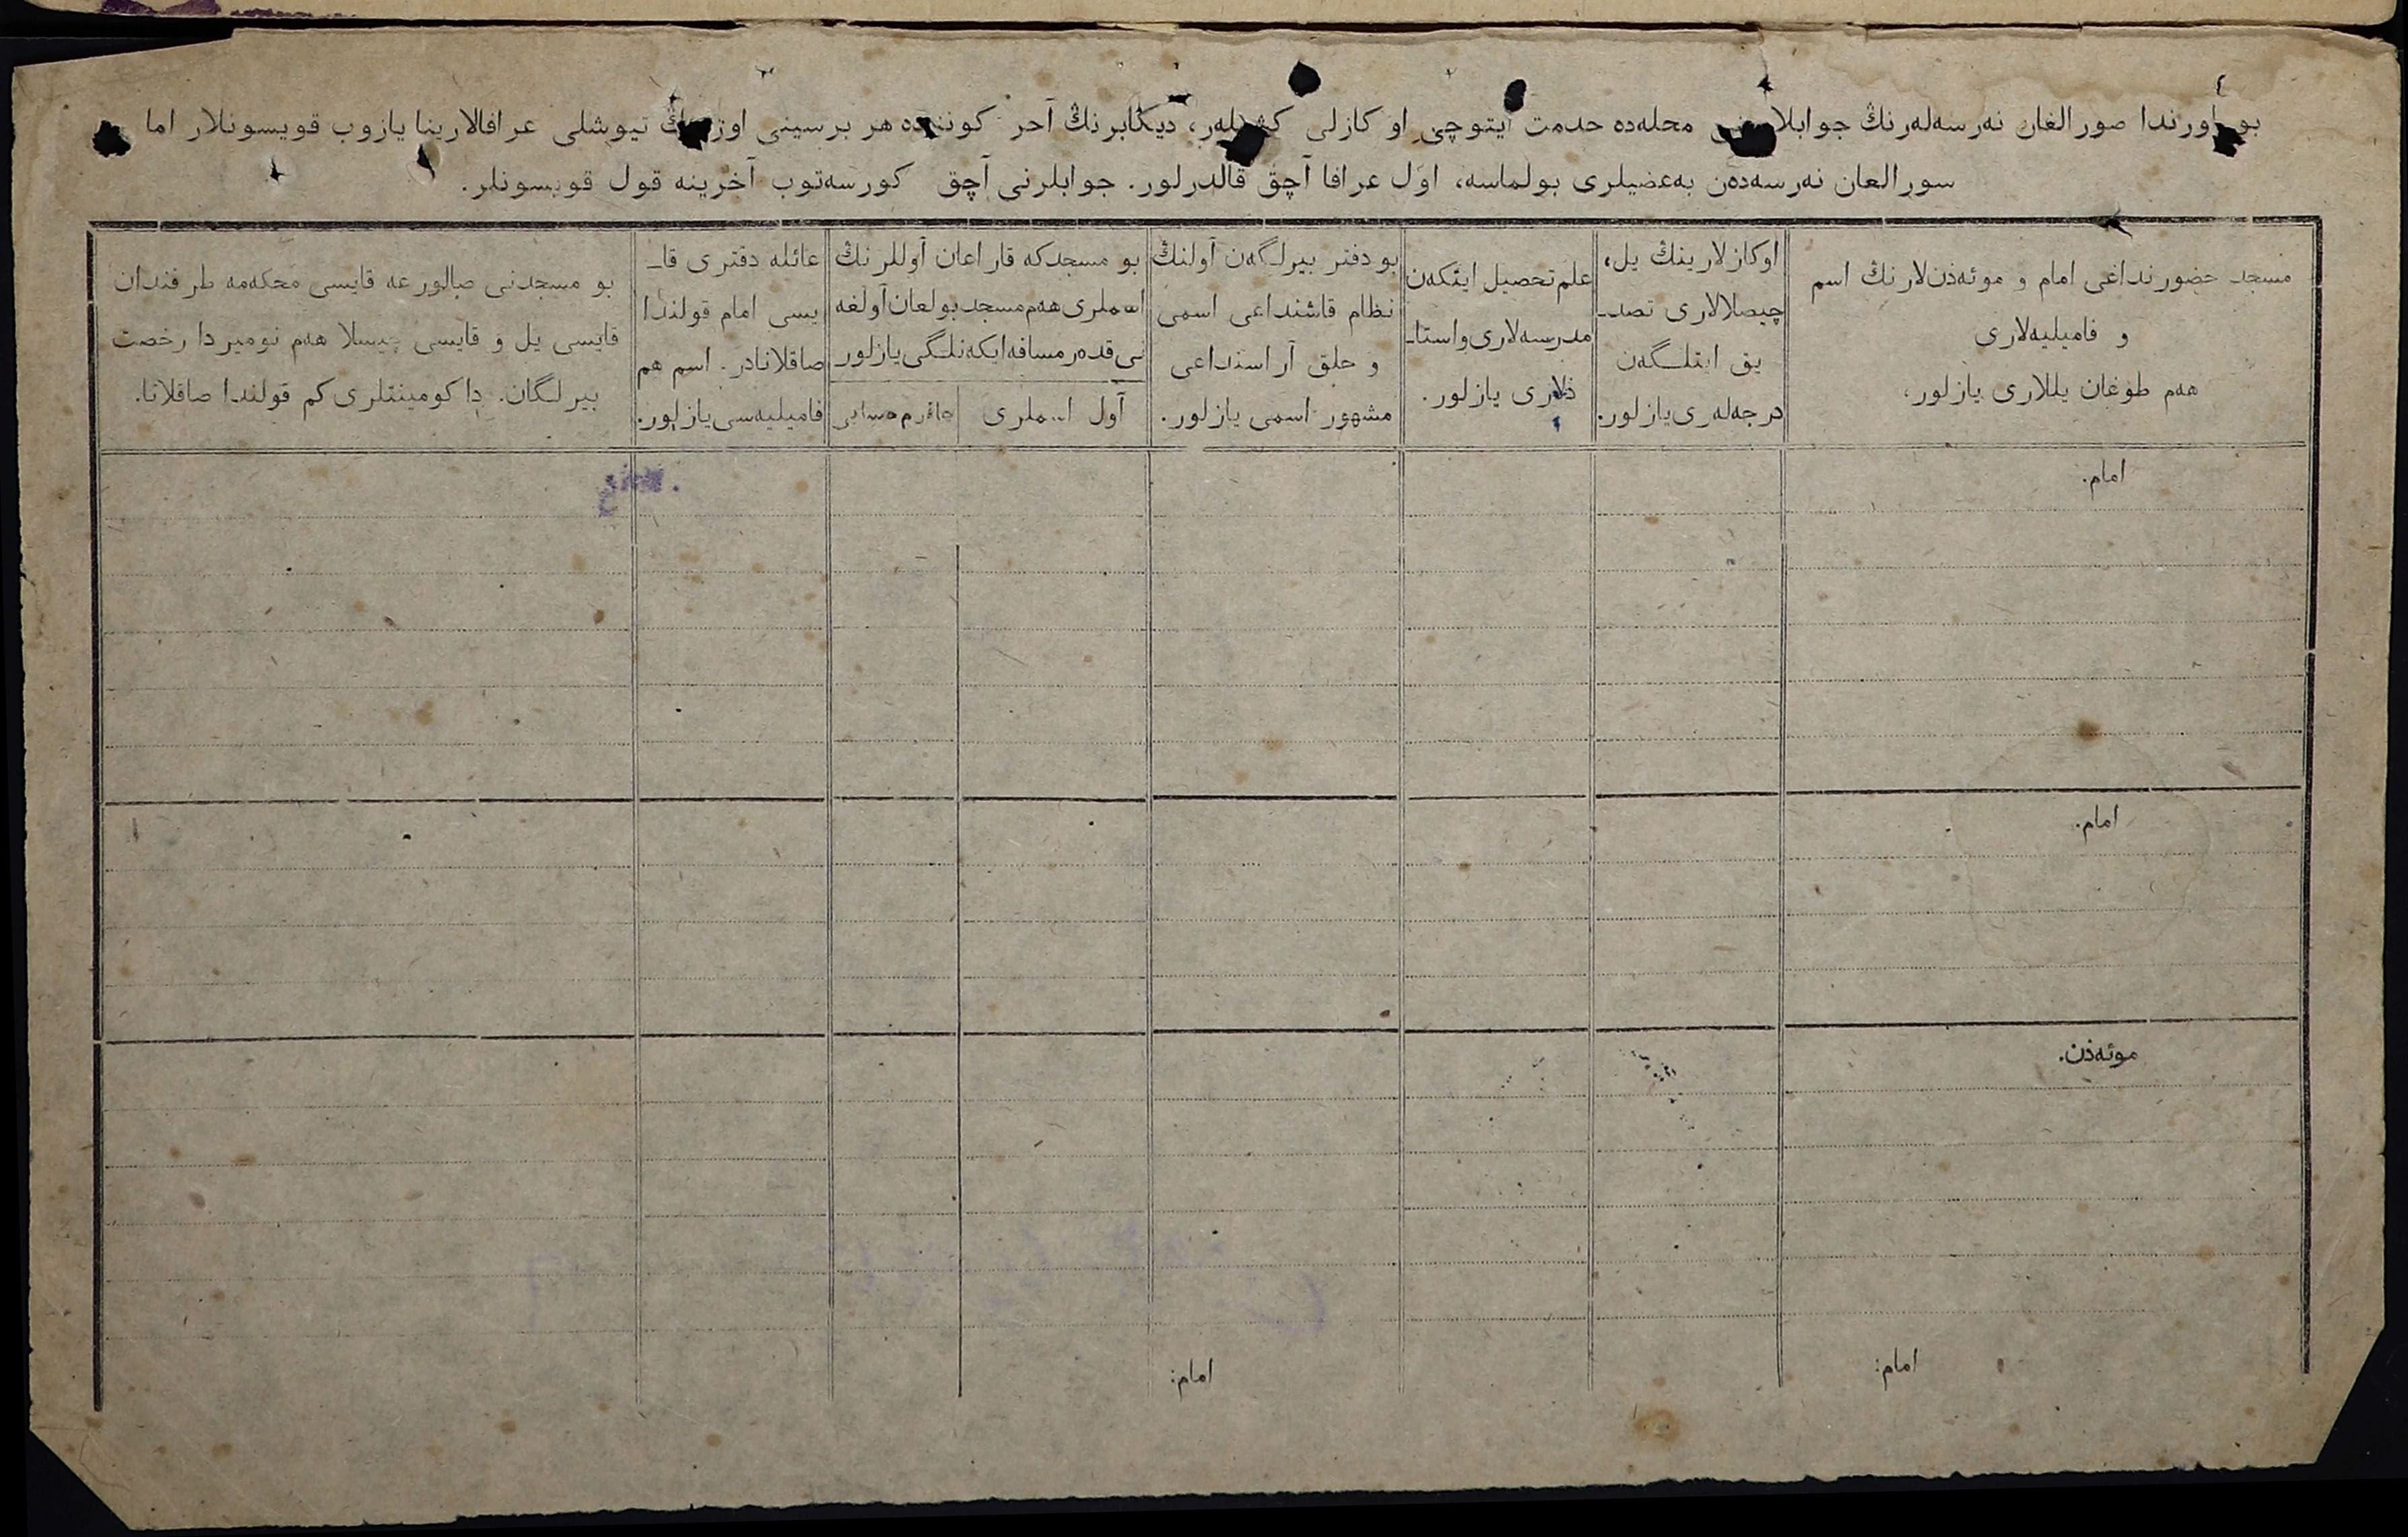 ٤
بو اورندا صورالغان نەرسەلەرنڭ جوابلارىنى محلەدە خدمت ايتوچى او كازلى كشىلەر، ديكابرنڭ آخر كوننده هر برسينى اوزىنڭ تيوشلى عرافالارينا يازوب قويسونلار اما
سورالعان نەرسەدەن بەعضيلرى بولماسه، اوَل عرافا آچق قالدرلور. جوابلرنى آچق كورسەتوب آخرينه قول قويسونلر.
مسجد حضورنداغى امام و موئەذن‌لارنڭ اسم
و فاميليەلارى
هەم طوغان يللارى يازلور،
اوكازلارينڭ يل،
چيصلالارى تصد‍ـ
يق ايتلـگەن
درجەلەرى يازلور.
علم تحصيل ايتكەن
مدرسەلارى و استا‍ـ
ذلارى يازلور.
بو دفتر بيرلـگەن آولنڭ
نظام قاشنداعى اسمى
و حلق آراسنداعى
مشهور اسمى يازلور.
بو مسجدكه قاراعان آوللرنڭ
اسملرى هەم مسجد بولعان آولغه
نى قدەر مسافه ايكەنلـگى يازلور
آول اسملرى
چاقرم حسابى
عائله دفترى قا‍ـ
يسى امام قولندا
صاقلانادر. اسم هم
فاميليەسى يازلور.
بو مسجدنى صالورعه قايسى محكەمه طرفندان
قايسى يل و قايسى چيسلا هەم نوميردا رخصت
بيرلـگان. داكومينتلرى كم قولندا صاقلانا.
امام.
امام.
موئەذن.
امام:
امام: